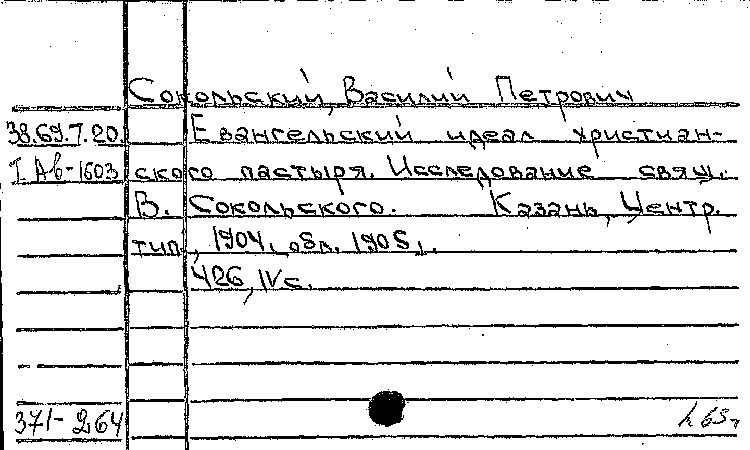 Сокольский, Василий Петрович
38.69.7.20. Евангельский идеал христиан-
I Аб-1603 ского пастыря. Исследование свящ.
В. Сокольского. Казань, Центр.
тип., 1904, обл. 1905.
426, IV с.
371-264